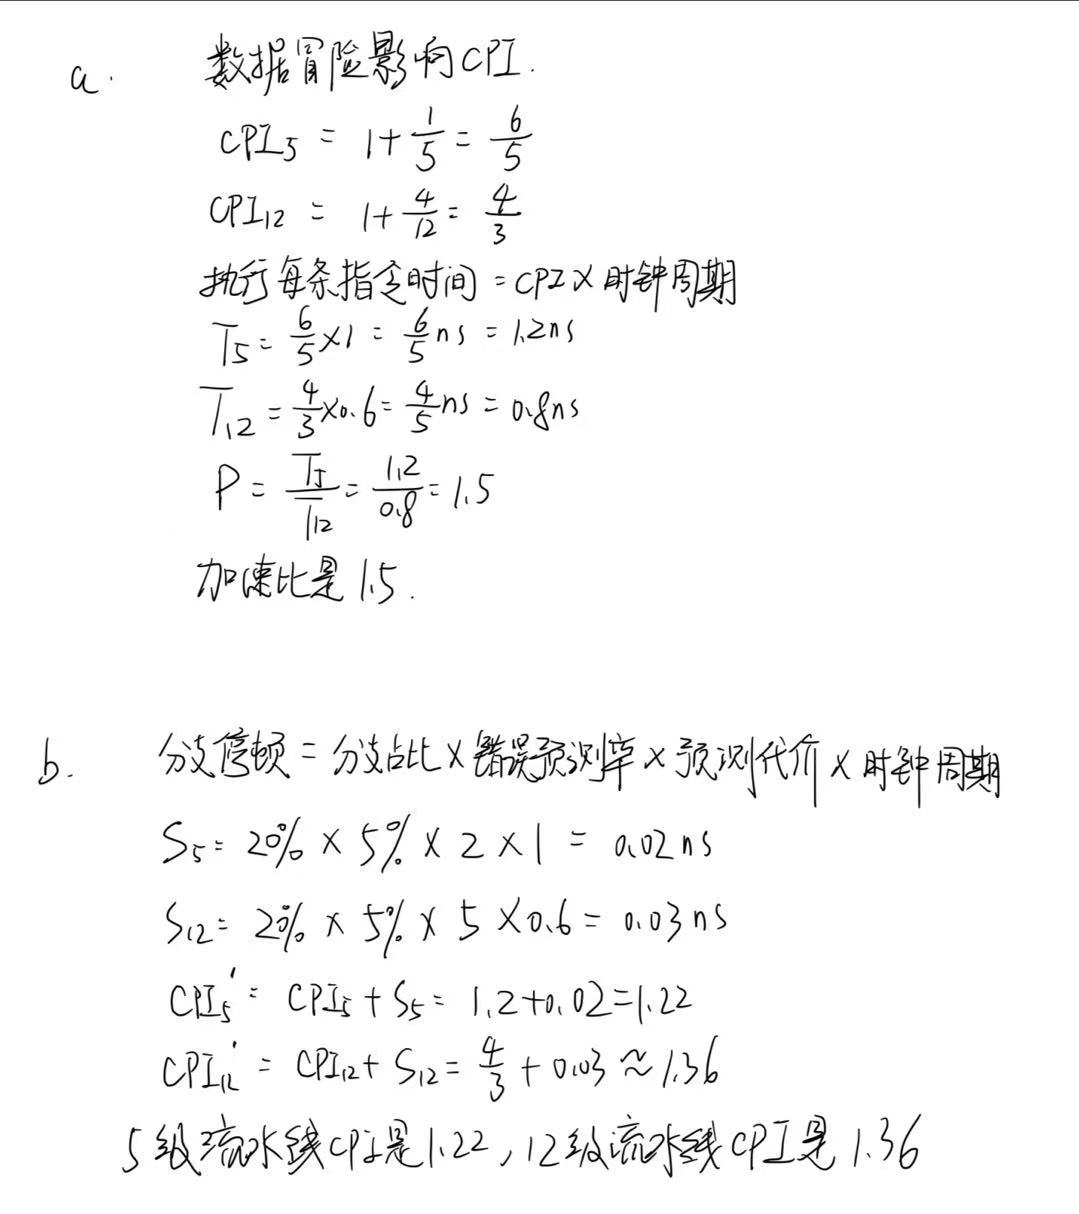 a. 数据冒险影响CPI.
CPI₅ = 1+1/5 = 6/5
CPI₁₂ = 1+4/12 = 4/3
执行每条指令时间 = CPI × 时钟周期
T₅ = 6/5×1 = 6/5 ns = 1.2ns
T₁₂ = 4/3×0.6 = 4/5 ns = 0.8ns
P = T₅/T₁₂ = 1.2/0.8 = 1.5
加速比是 1.5.
b. 分支停顿 = 分支占比 × 错误预测率 × 预测代价 × 时钟周期
S₅ = 20% × 5% × 2 × 1 = 0.02 ns
S₁₂ = 20% × 5% × 5 × 0.6 = 0.03 ns
CPI₅' = CPI₅ + S₅ = 1.2+0.02=1.22
CPI₁₂' = CPI₁₂ + S₁₂ = 4/3 + 0.03 ≈ 1.36
5级流水线CPI是1.22, 12级流水线CPI是 1.36